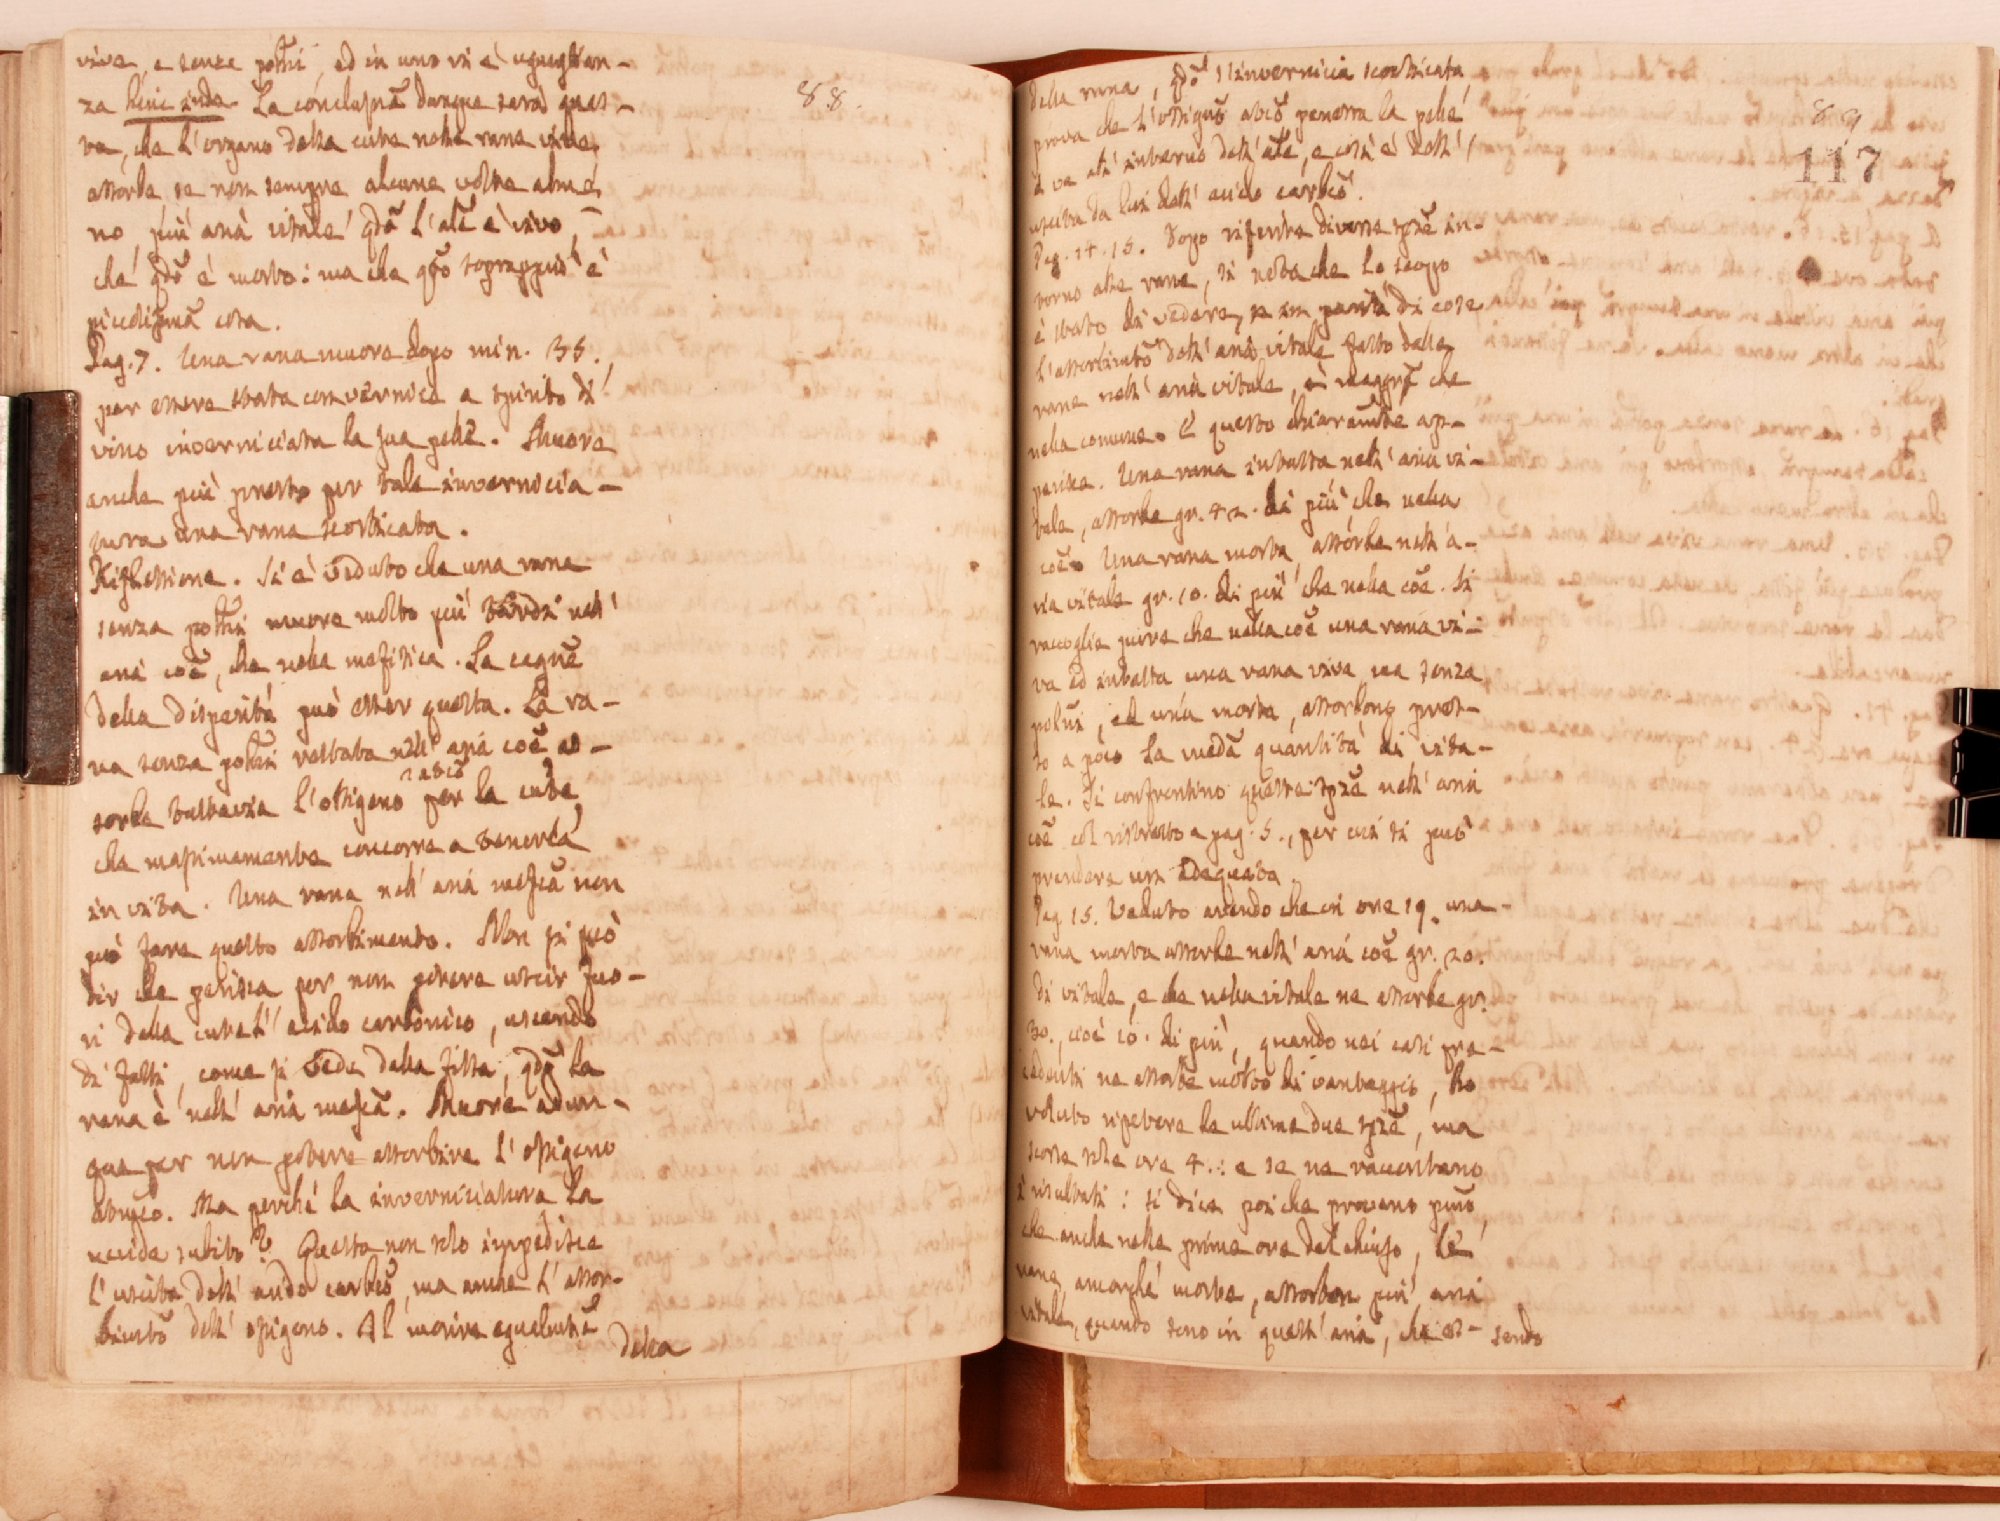 88.
viva, e senza polm̃i, ed in uno vi è uguaglian-
za hinc inde. La conclusiõ dunque sarà ques-
ta, che l'organo della cute nelle rane vive
assorbe se non sempre alcune volte alme
no più aria vitale qdõ l'ãle è vivo,
che qdõ è morto: ma che qto soprappiù è
piccolissima cosa.
Pag. 7. Una rana muore dopo min. 35.,
per essere stata con vernice a spirito di
vino inverniciata la sua pelle. Muore
anche più presto per tale invernicia-
tura una rana scorticata.
Riflessione. Si è veduto che una rana
senza polm̃i muore molto più tardi nell'
aria coẽ, che nella mefitica. La cagnẽ
della disparità può esser questa. La ra-
na senza polm̃i restata nell' aria coẽ as-
sorbe tuttavia l'ossigeno per la cute,
che massimamente concorre a tenerla
in vita. Una rana nell' aria mefcã non
può fare questo assorbimento. Non si può
dir che perisca per non potere uscir fuo-
ri della cute l'acido carbonico, uscendo
di fatti, come si vede dalla fissa, qdõ la
rana è nell' aria mefcã. Muore adun-
que per non potere assorbire l'ossigeno
Ma perchè la inverniciatura la
uccide subito? Questa non solo impedisce
l'uscita dell' acido carbcõ, ma anche l'assor-
bimtõ dell' ossigeno. Al morire egualmtẽ
della
89
117
della rana, qdõ s'invernicia scorticata,
prova che l'ossignõ penetra la pelle,
e va all' interno dell' ãle, e così è dell'
uscita da lui dell' acido carbcõ.
Pag. 14. 15. Dopo riferite diverse spzẽ in-
torno alle rane, si nota che lo scopo
è stato di vedere, se in parità di cose
l'assorbimtõ dell' aria vitale fatto dalle
rane nell' aria vitale, è maggrẽ che
nella comune. E questo chiaramtẽ ap-
parisce. Una rana intatta nell' aria vi-
tale, assorbe gr. 42. di più che nella
coẽ. Una rana morta, assorbe nell' a-
ria vitale gr. 10. di più che nella coẽ. Si
raccoglie pure che nella coẽ una rana vi-
va ed intatta una rana viva, ma senza
polm̃i, ed una morta, assorbono pres-
so a poco la medã quantità di vita-
le. Si confrontino queste spzẽ nell' aria
coẽ col ristretto a pag. 5., per cui si può
prendere un adequata.
Pag. 15. Veduto avendo che in ore 19. una
rana morta assorbe nell' aria coẽ gr. 20.
di vitale, e che nella vitale ne assorbe gr.
30., cioè 10. di più, quando nei casi pre-
cedenti ne assorbe molto di vantaggio, ho
voluto ripetere le ultime due spzẽ, ma
scorse sole ore 4.: e se ne raccontano
i risultati: si dica poi che provano
che anche nelle prime ore del chiuso, le
rane, ancorchè morte, assorbon più aria
vitale, quando sono in quell' aria, che es-
sendo